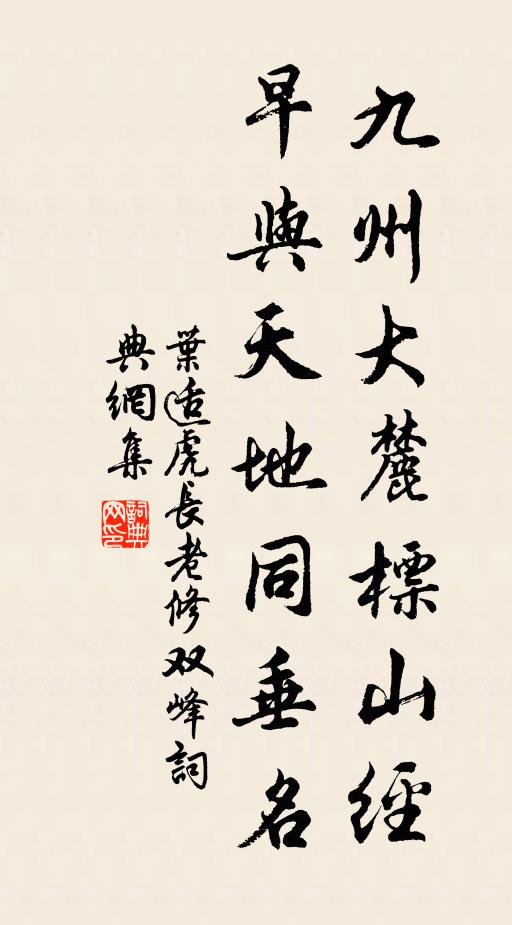 九州大麓標山經
早與天地同垂名
葉适虎長老修双峰詞
典網集
詞典網印